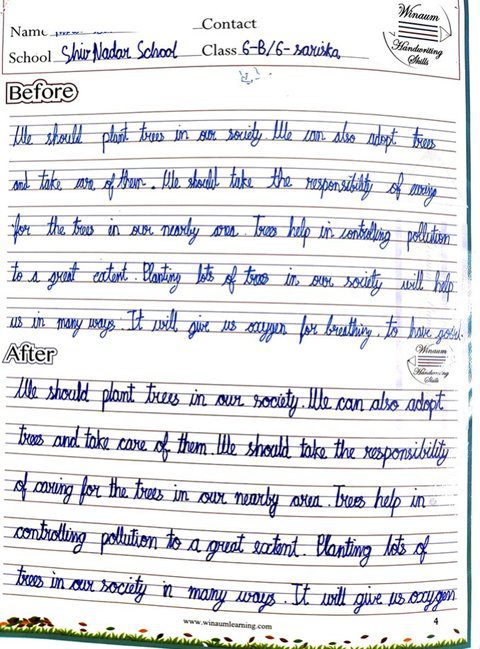 Name Contact
School Shiv Nadar School Class 6-B/6-sariska
Winaum
Handwriting
Skills
Before
We should plant trees in our society We can also adopt trees
and take care of them. We should take the responsibility of caring
for the trees in our nearby area. Trees help in controlling pollution
to a great extent. Planting lots of trees in our society will help
us in many ways. It will give us oxygen for breathing, to have good
After
Winaum
Handwriting
Skills
We should plant trees in our society. We can also adopt
trees and take care of them. We should take the responsibility
of caring for the trees in our nearby area. Trees help in
controlling pollution to a great extent. Planting lots of
trees in our society in many ways. It will give us oxygen
www.winaumlearning.com
4